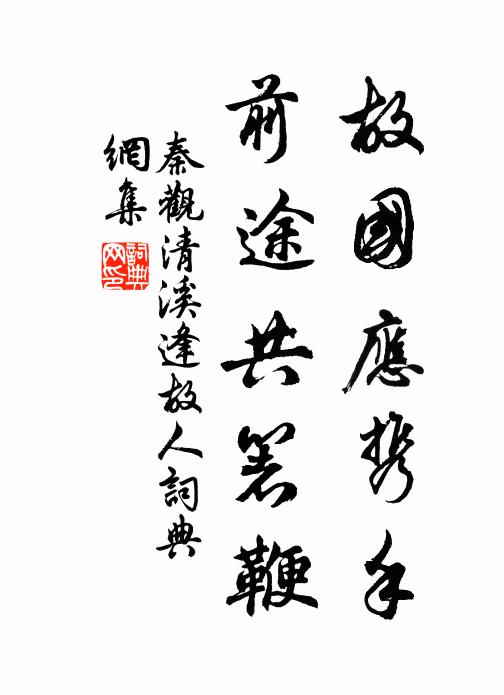 故國應携手
前途共著鞭
秦觀清溪逢故人詞典
網集
詞典网印